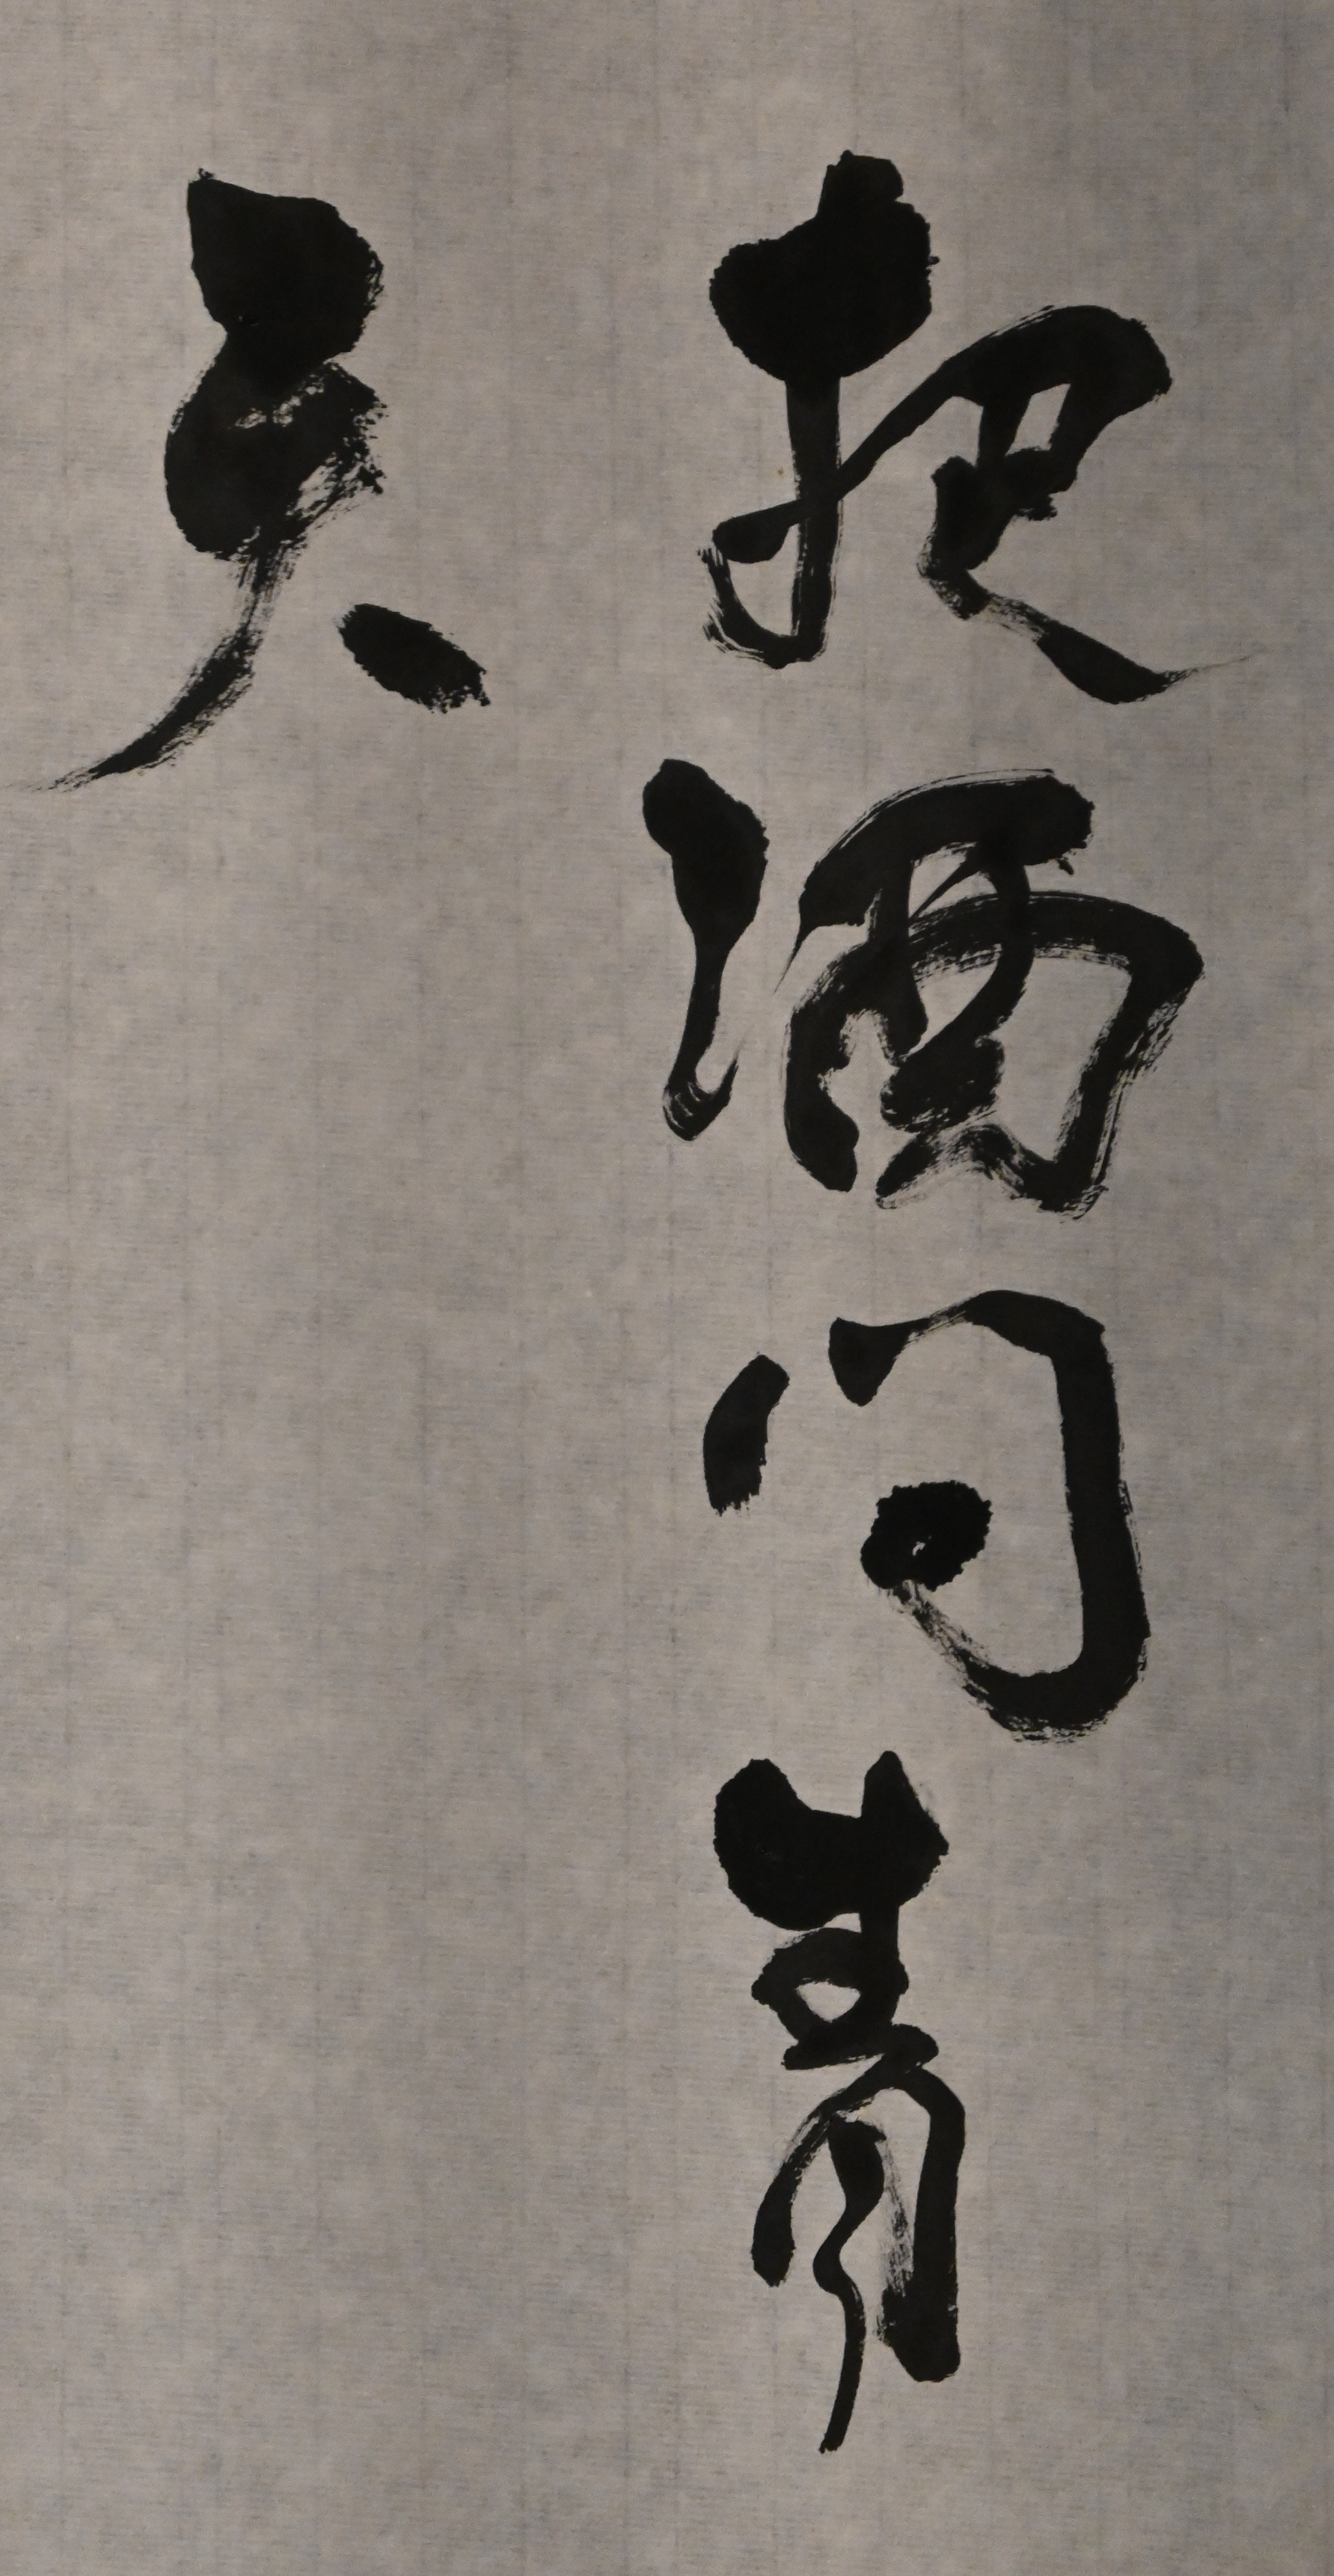 把酒问青
天